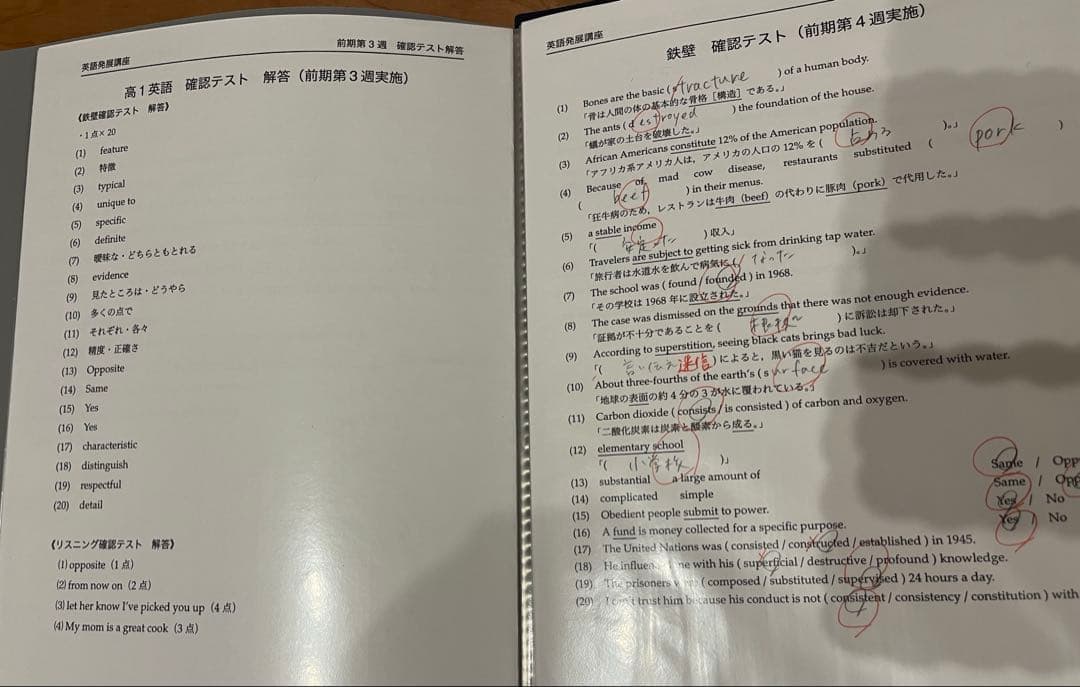 英語発展講座
前期第3週 確認テスト解答
高1英語 確認テスト 解答（前期第3週実施）
《鉄壁確認テスト 解答》
・1点×20
(1) feature
(2) 特徴
(3) typical
(4) unique to
(5) specific
(6) definite
(7) 曖昧な・どちらともとれる
(8) evidence
(9) 見たところは・どうやら
(10) 多くの点で
(11) それぞれ・各々
(12) 精度・正確さ
(13) Opposite
(14) Same
(15) Yes
(16) Yes
(17) characteristic
(18) distinguish
(19) respectful
(20) detail
《リスニング確認テスト 解答》
(1) opposite（1点）
(2) from now on（2点）
(3) let her know I've picked you up（4点）
(4) My mom is a great cook（3点）
英語発展講座
鉄壁 確認テスト（前期第4週実施）
(1) Bones are the basic ( structure ) of a human body.
「骨は人間の体の基本的な骨格［構造］である。」
(2) The ants ( destroyed ) the foundation of the house.
「蟻が家の土台を破壊した。」
(3) African Americans constitute 12% of the American population.
「アフリカ系アメリカ人は，アメリカの人口の12%を（ 占める ）。」
(4) Because of mad cow disease, restaurants substituted ( pork )
( beef ) in their menus.
「狂牛病のため，レストランは牛肉（beef）の代わりに豚肉（pork）で代用した。」
(5) a stable income
「（ 安定した ）収入」
(6) Travelers are subject to getting sick from drinking tap water.
「旅行者は水道水を飲んで病気に なった ）。」
(7) The school was ( found / founded ) in 1968.
「その学校は1968年に設立された。」
(8) The case was dismissed on the grounds that there was not enough evidence.
「証拠が不十分であることを（ 根拠 ）に訴訟は却下された。」
(9) According to superstition, seeing black cats brings bad luck.
「（ 言い伝え 迷信 ）によると，黒い猫を見るのは不吉だという。」
(10) About three-fourths of the earth's ( surface ) is covered with water.
「地球の表面の約4分の3が水に覆われている。」
(11) Carbon dioxide ( consists / is consisted ) of carbon and oxygen.
「二酸化炭素は炭素と酸素から成る。」
(12) elementary school
「（ 小学校 ）」
(13) substantial a large amount of Same / Opp
(14) complicated simple Same / Opp
(15) Obedient people submit to power. Yes / No
(16) A fund is money collected for a specific purpose. Yes / No
(17) The United Nations was ( consisted / constructed / established ) in 1945.
(18) He with his ( superficial / destructive / profound ) knowledge.
(19) The prisoners ( composed / substituted / supervised ) 24 hours a day.
(20) trust him because his conduct is not ( consistent / consistency / constitution ) with